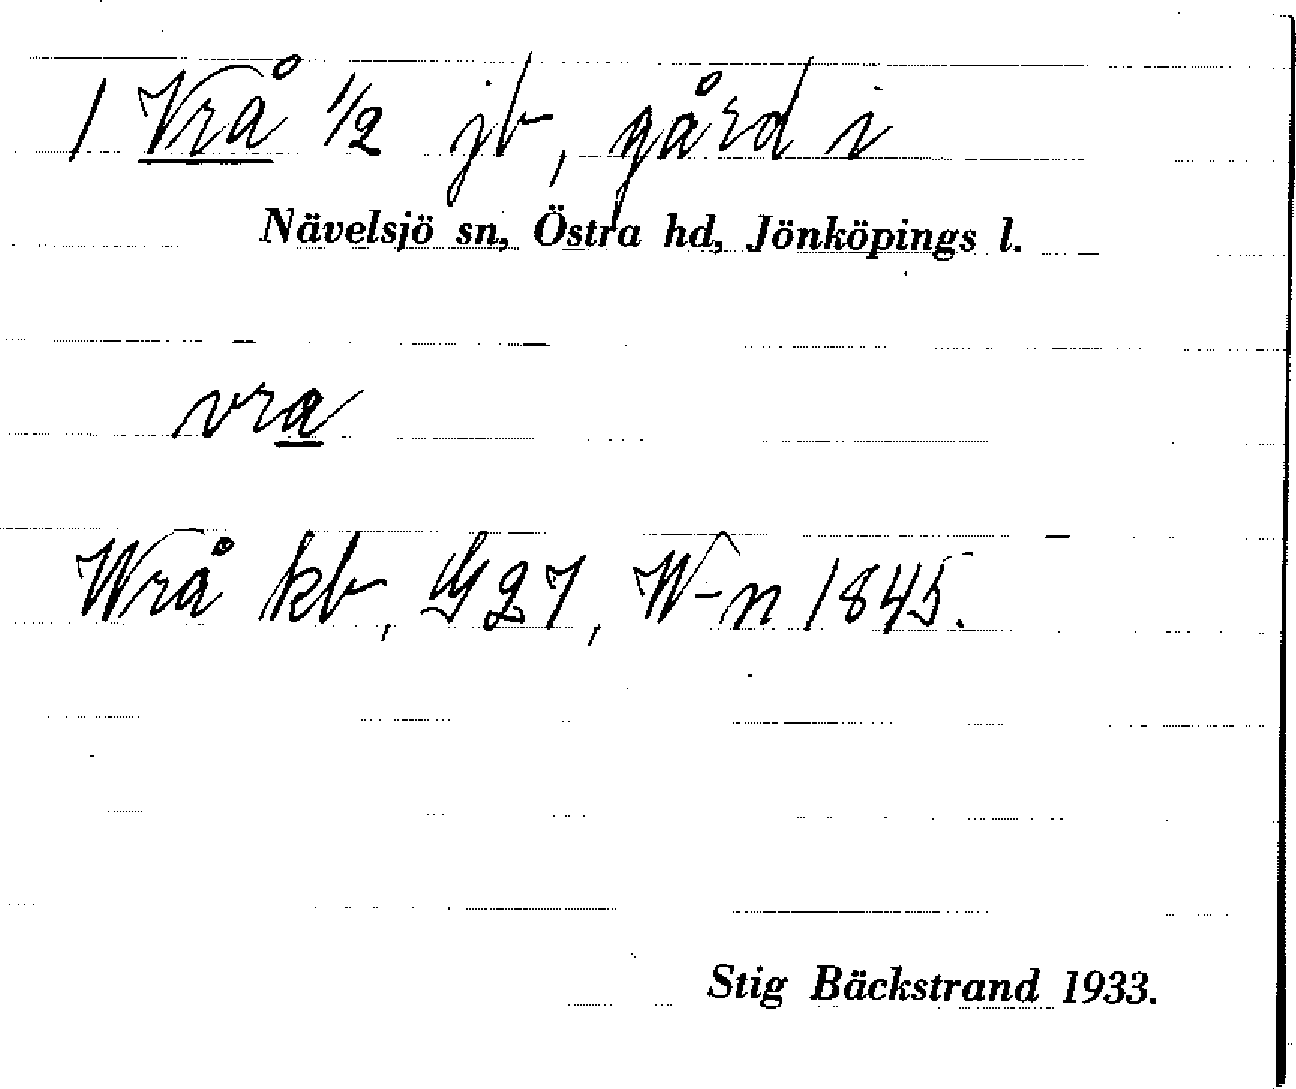 1 Vrå 1/2 jb, gård i
Nävelsjö sn, Östra hd, Jönköpings l.
vra
Wrå kb, G 27, W-n 1845.
Stig Bäckstrand 1933.